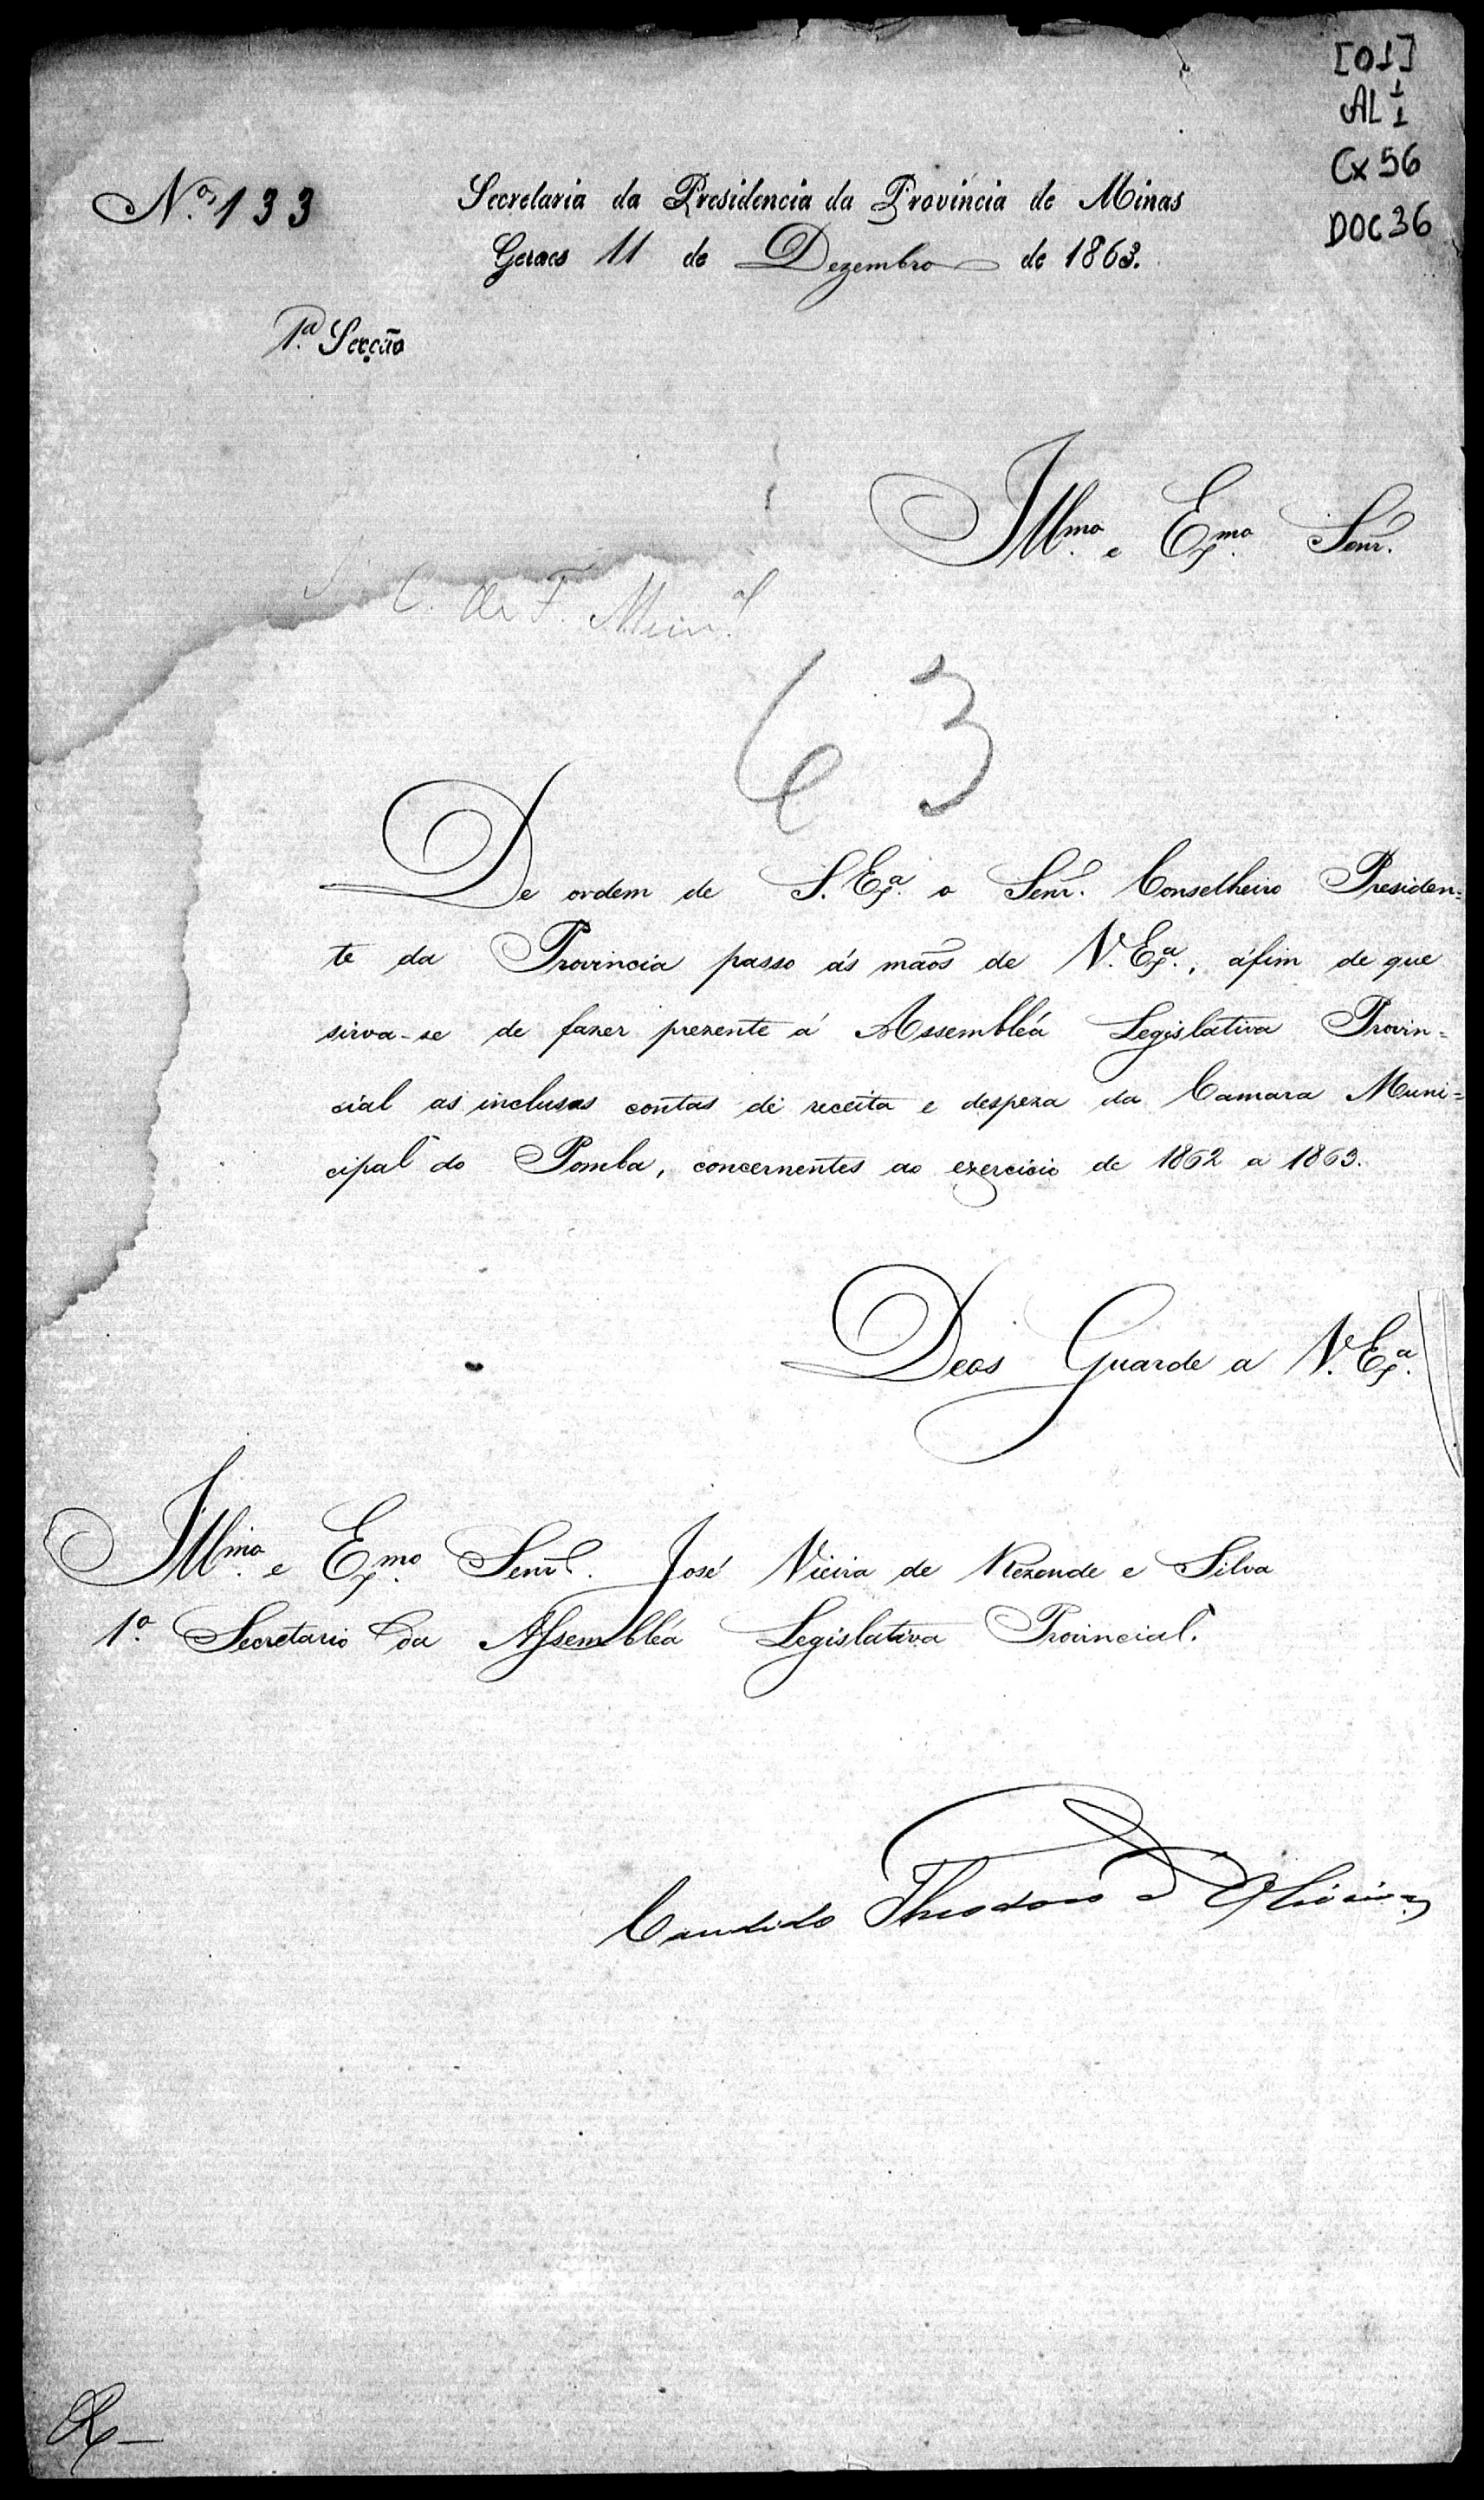 [01]
AL 1/1
Cx 56
DOC 36
N.º 133
Secretaria da Presidencia da Provincia de Minas
Geraes 11 de Dezembro de 1863.
1.ª Secção
Illmo. e Exmo. Senr.
C. de F. Mun.al
63
De ordem de S. Exª. o Senr. Conselheiro Presiden=
te da Provincia passo ás mãos de V. Exª., áfim de que
sirva-se de fazer prezente á Assembléa Legislativa Provin=
cial as inclusas contas de receita e despeza da Camara Muni=
cipal do Pomba, concernentes ao exercicio de 1862 a 1863.
Deos Guarde a V. Exª.
Illmo. e Exmo. Senr. José Vieira de Rezende e Silva
1º. Secretario da Assembléa Legislativa Provincial.
Candido Theodoro d'Oliveira